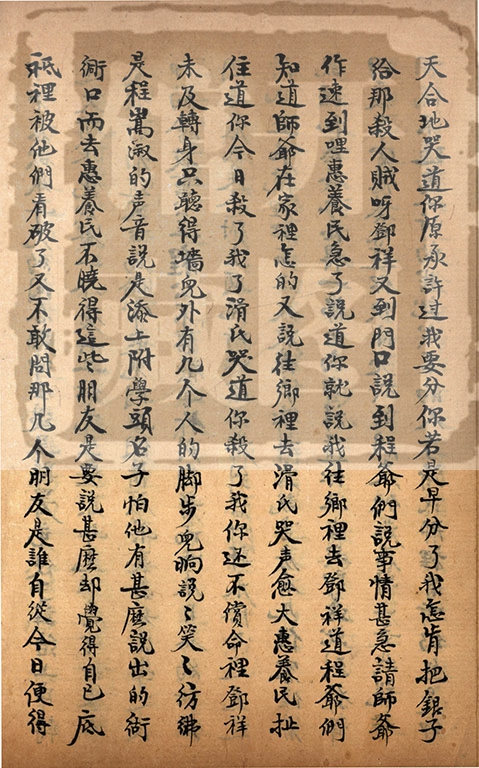 天合地哭道你原承許过我要分你若是早分了我怎肯把銀子
給那殺人賊呀鄧祥又到門口說到程爺們說事情甚急請師爺
作速到哩惠養民急了說道你就說我往鄉裡去鄧祥道程爺們
知道師爺在家裡怎的又說往鄉裡去滑氏哭声愈大惠養民扯
住道你今日殺了我了滑氏哭道你殺了我你还不償命裡鄧祥
未及轉身只聽得墻兒外有几个人的脚步兒响說〻笑〻彷彿
是程嵩淑的声音說是添上附學頭名子怕他有甚庅說出的衚
衕口而去惠養民不曉得這些朋友是要說甚麽却覺得自己底
秪裡被他們看破了又不敢問那几个朋友是誰自從今日便得